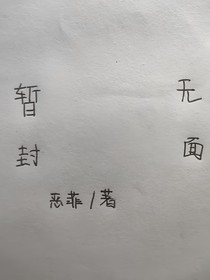 无面
暂封
恶菲/著